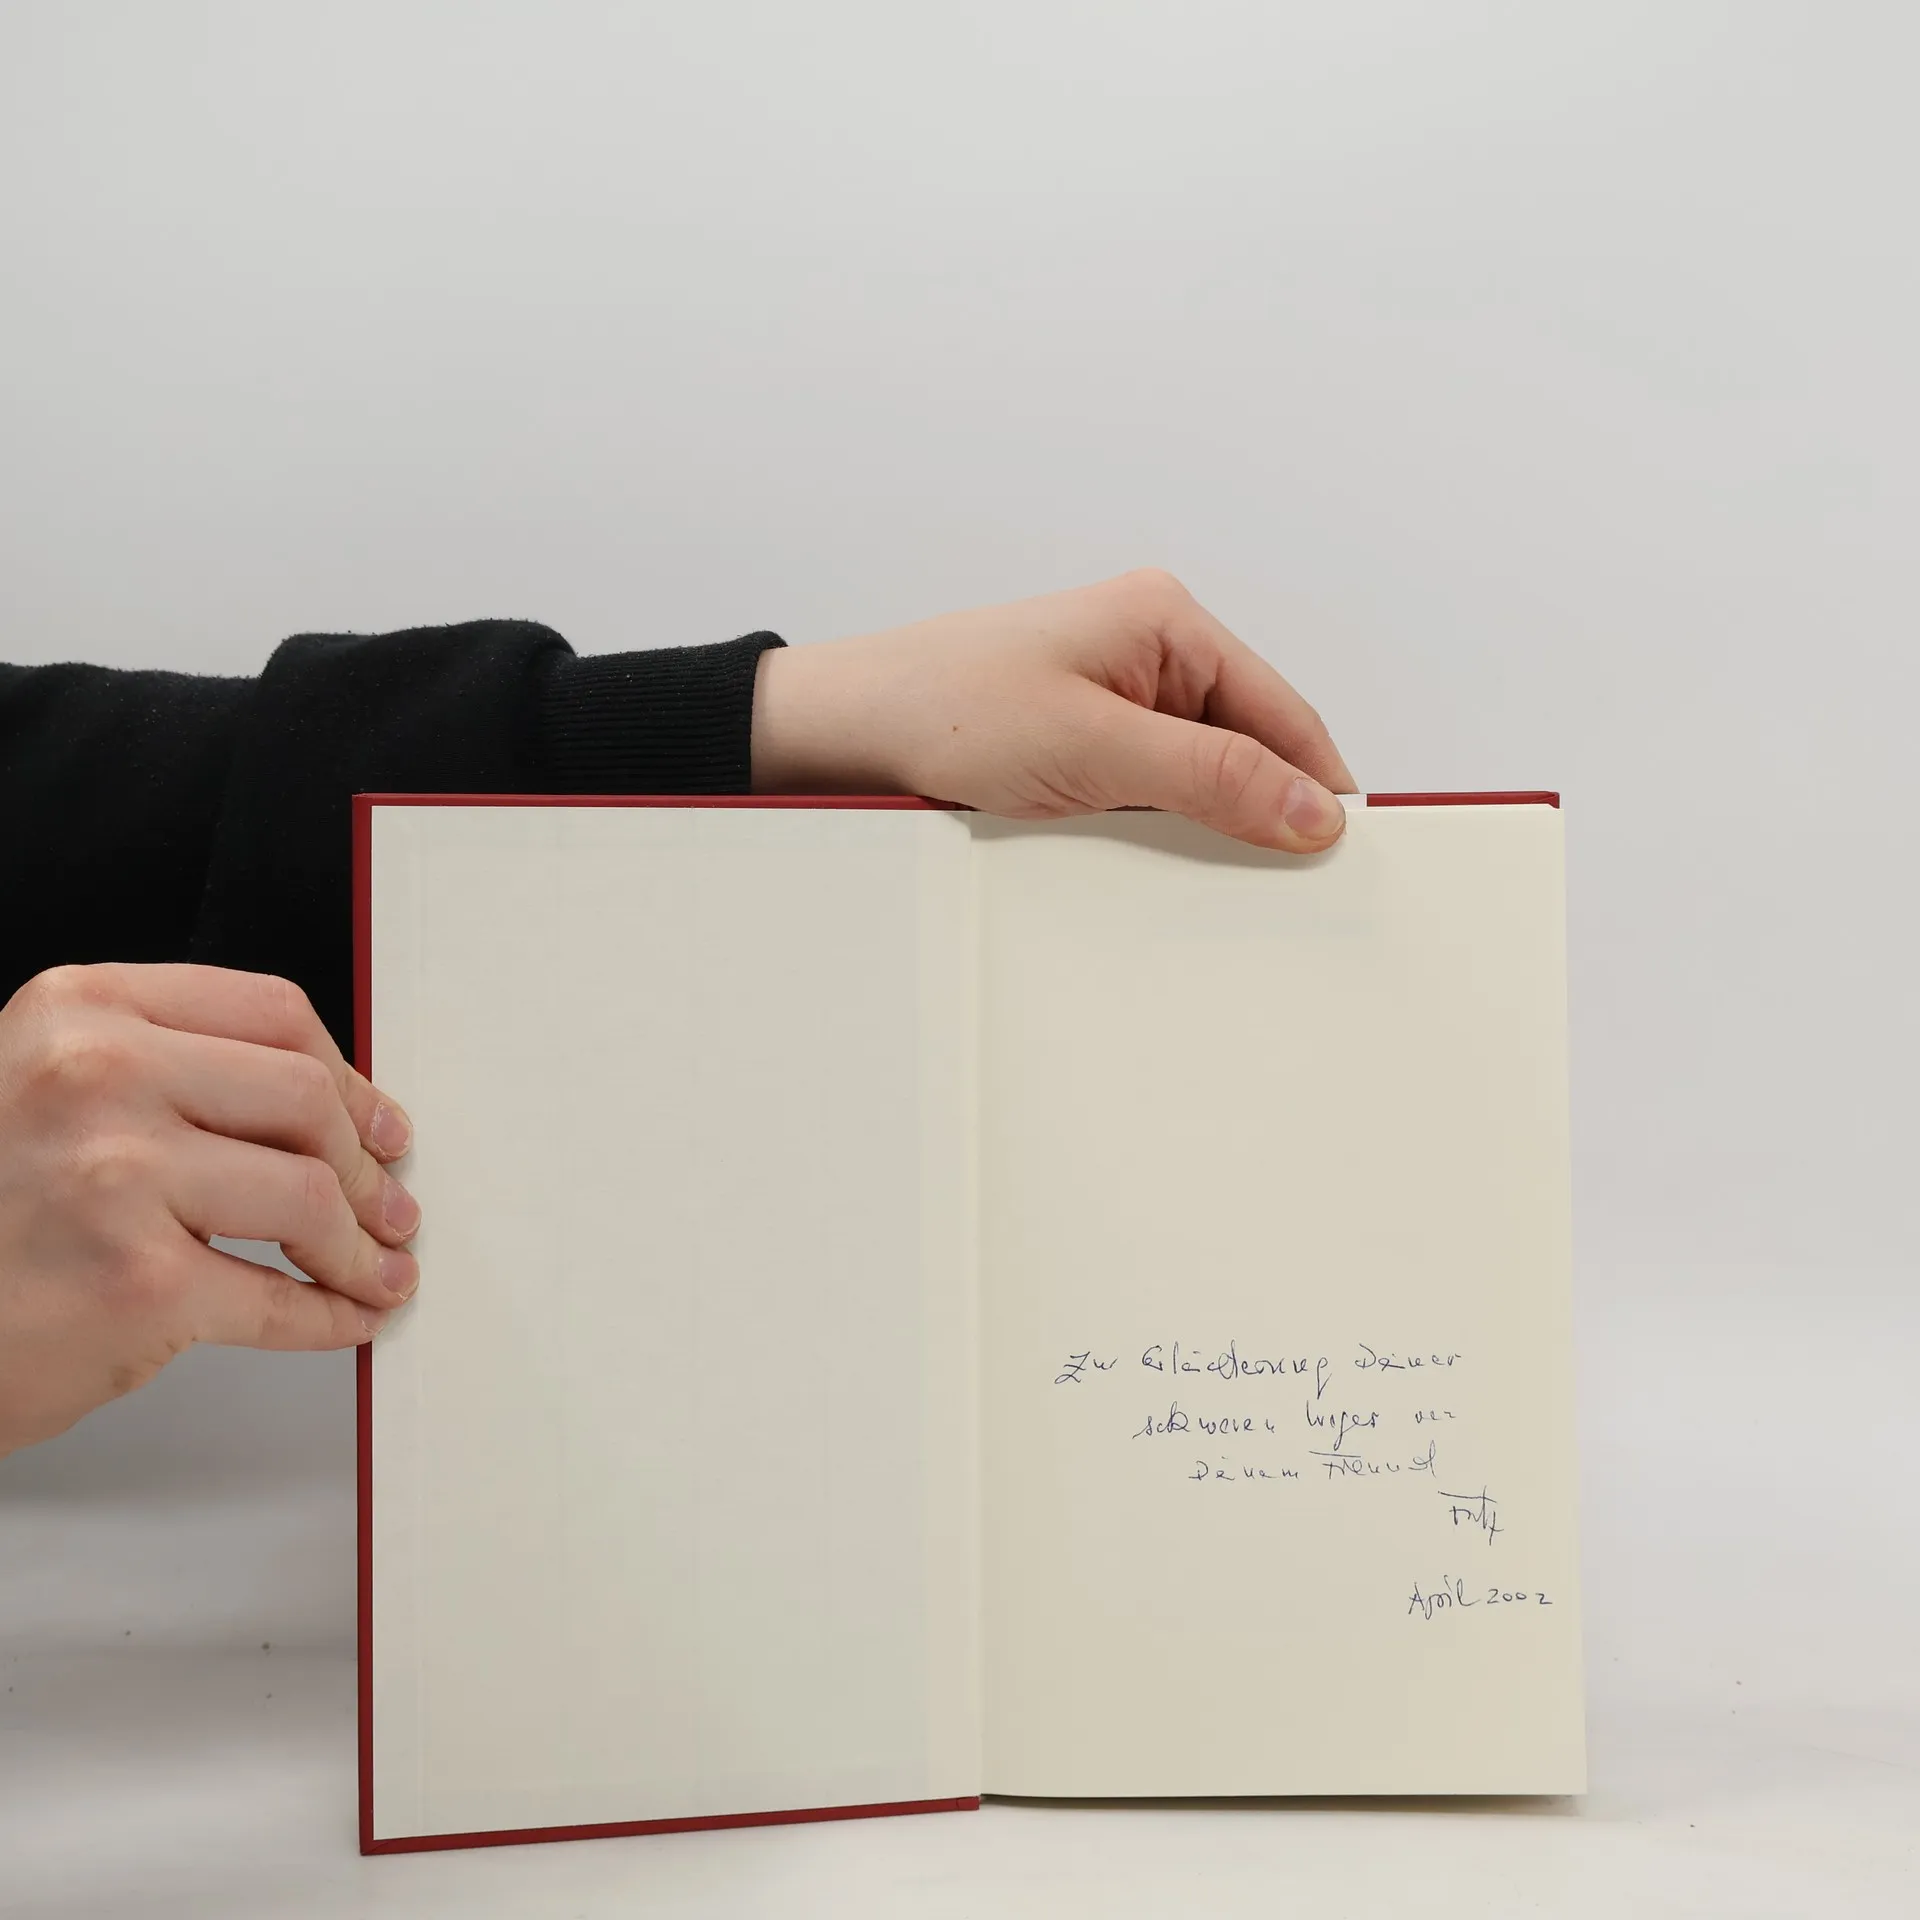 Zur Erleichterung Deiner
schweren Weges von
Deinem Freund
Fritz
April 2002